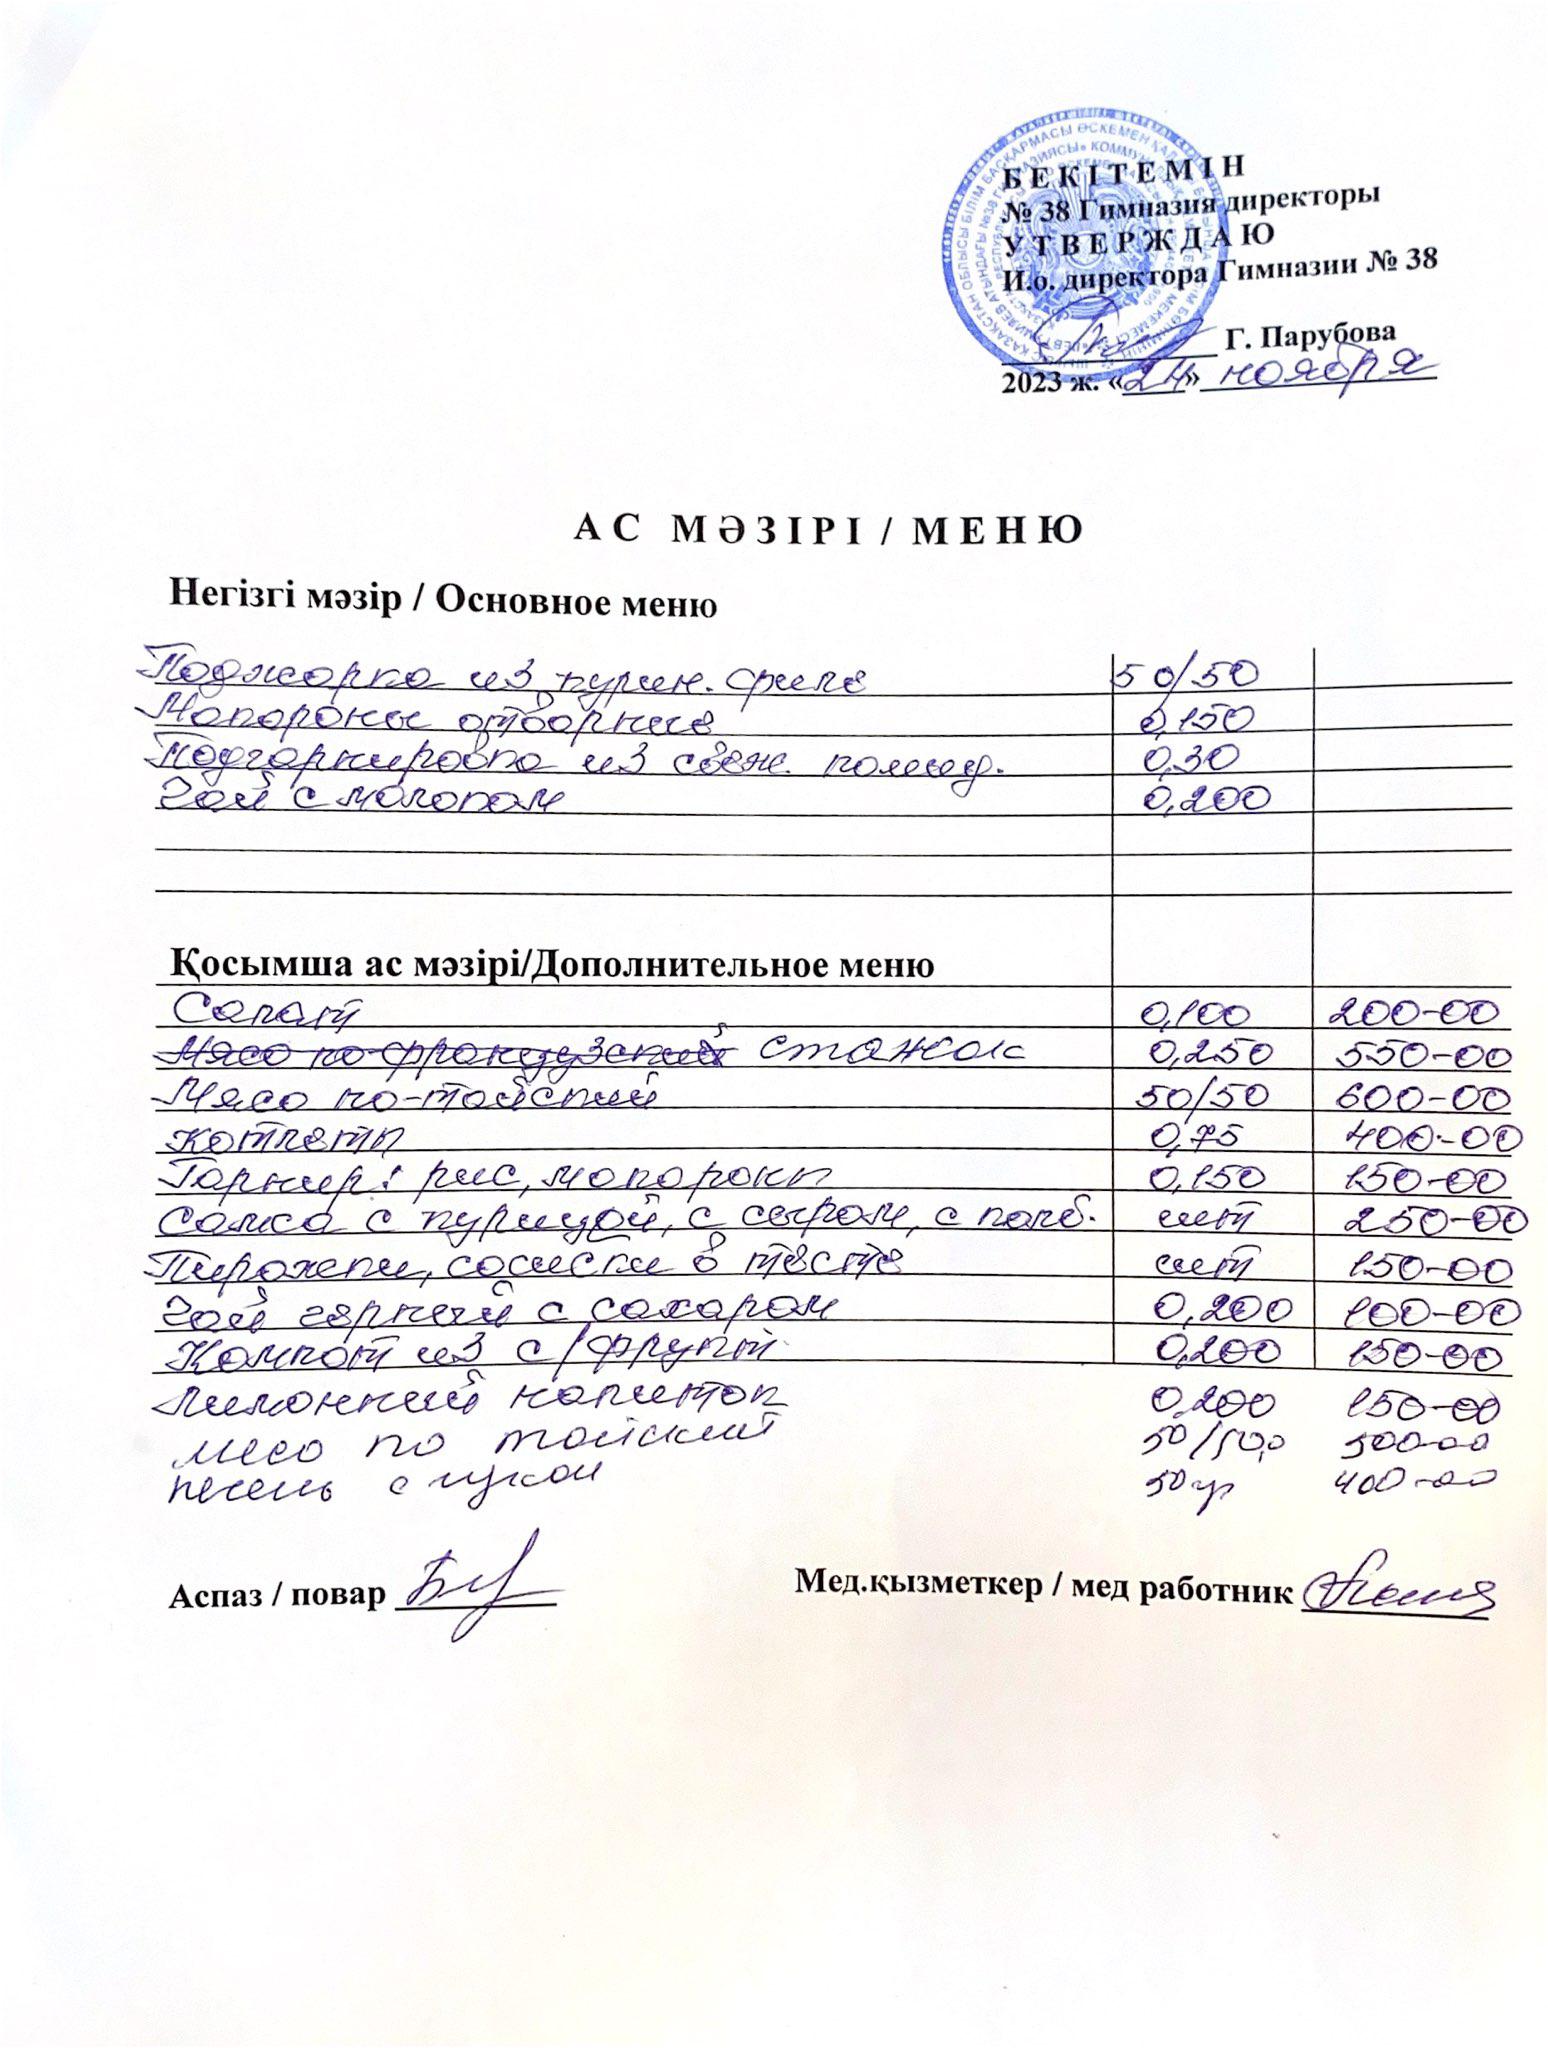 БЕКІТЕМІН
№ 38 Гимназия директоры
УТВЕРЖДАЮ
И.о. директора Гимназии № 38
Г. Парубова
2023 ж. «24» ноября
АС МӘЗІРІ / МЕНЮ
Негізгі мәзір / Основное меню
Поджарка из курин. филе 50/50
Макароны отварные 0,150
Подгарнировка из свеж. помид. 0,30
Чай с молоком 0,200
Қосымша ас мәзірі/Дополнительное меню
Салат 0,100 200-00
Мясо по-французский 0,250 550-00
Мясо по-тайский 50/50 600-00
Котлеты 0,75 400-00
Гарнир: рис, макароны 0,150 150-00
Самса с курицей, с сыром, с колб. шт 250-00
Пирожки, сосиски в тесте шт 150-00
Чай чёрный с сахаром 0,200 100-00
Компот из с/фрукт. 0,200 150-00
Лимонный напиток 0,200 150-00
мясо по тайский 50/50 500-00
печень с луком 50 гр 400-00
Аспаз / повар
Мед.қызметкер / мед работник